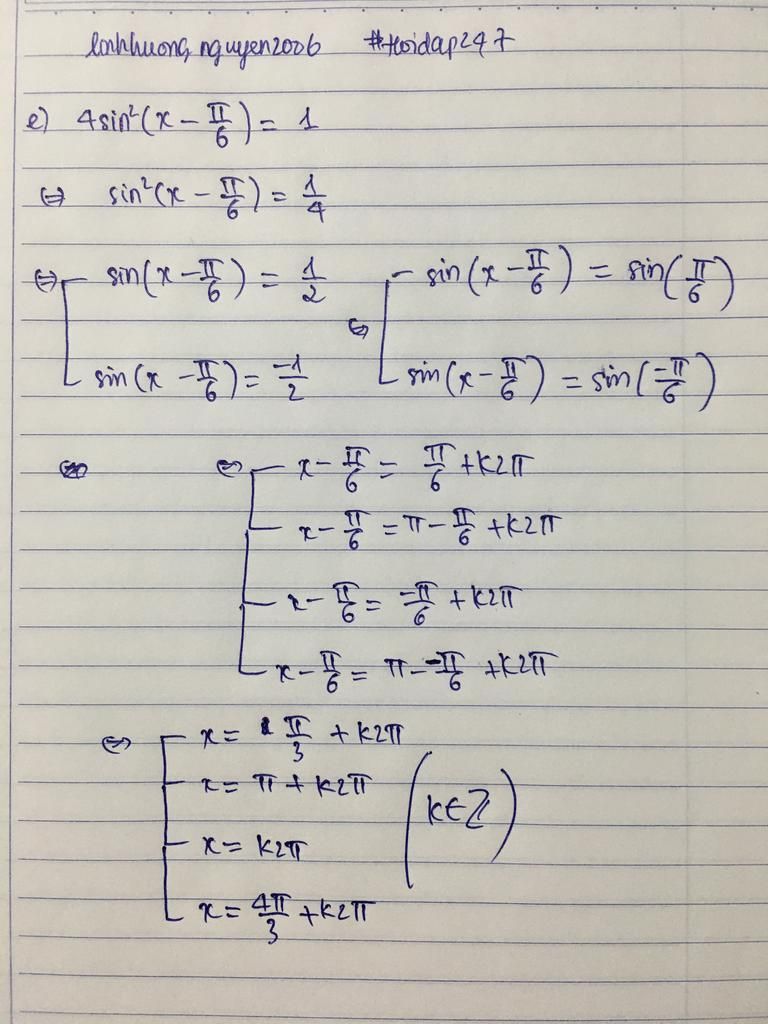 linhhuong nguyen2006 #Hoidap247
e) 4sin²(x - π/6) = 1
⇔ sin²(x - π/6) = 1/4
⇔ [ sin(x - π/6) = 1/2 ⇔ [ sin(x - π/6) = sin(π/6)
sin(x - π/6) = -1/2 sin(x - π/6) = sin(-π/6)
⇔ [ x - π/6 = π/6 + k2π
x - π/6 = π - π/6 + k2π
x - π/6 = -π/6 + k2π
x - π/6 = π - -π/6 + k2π
⇔ [ x = π/3 + k2π
x = π + k2π
(k∈Z)
x = k2π
x = 4π/3 + k2π